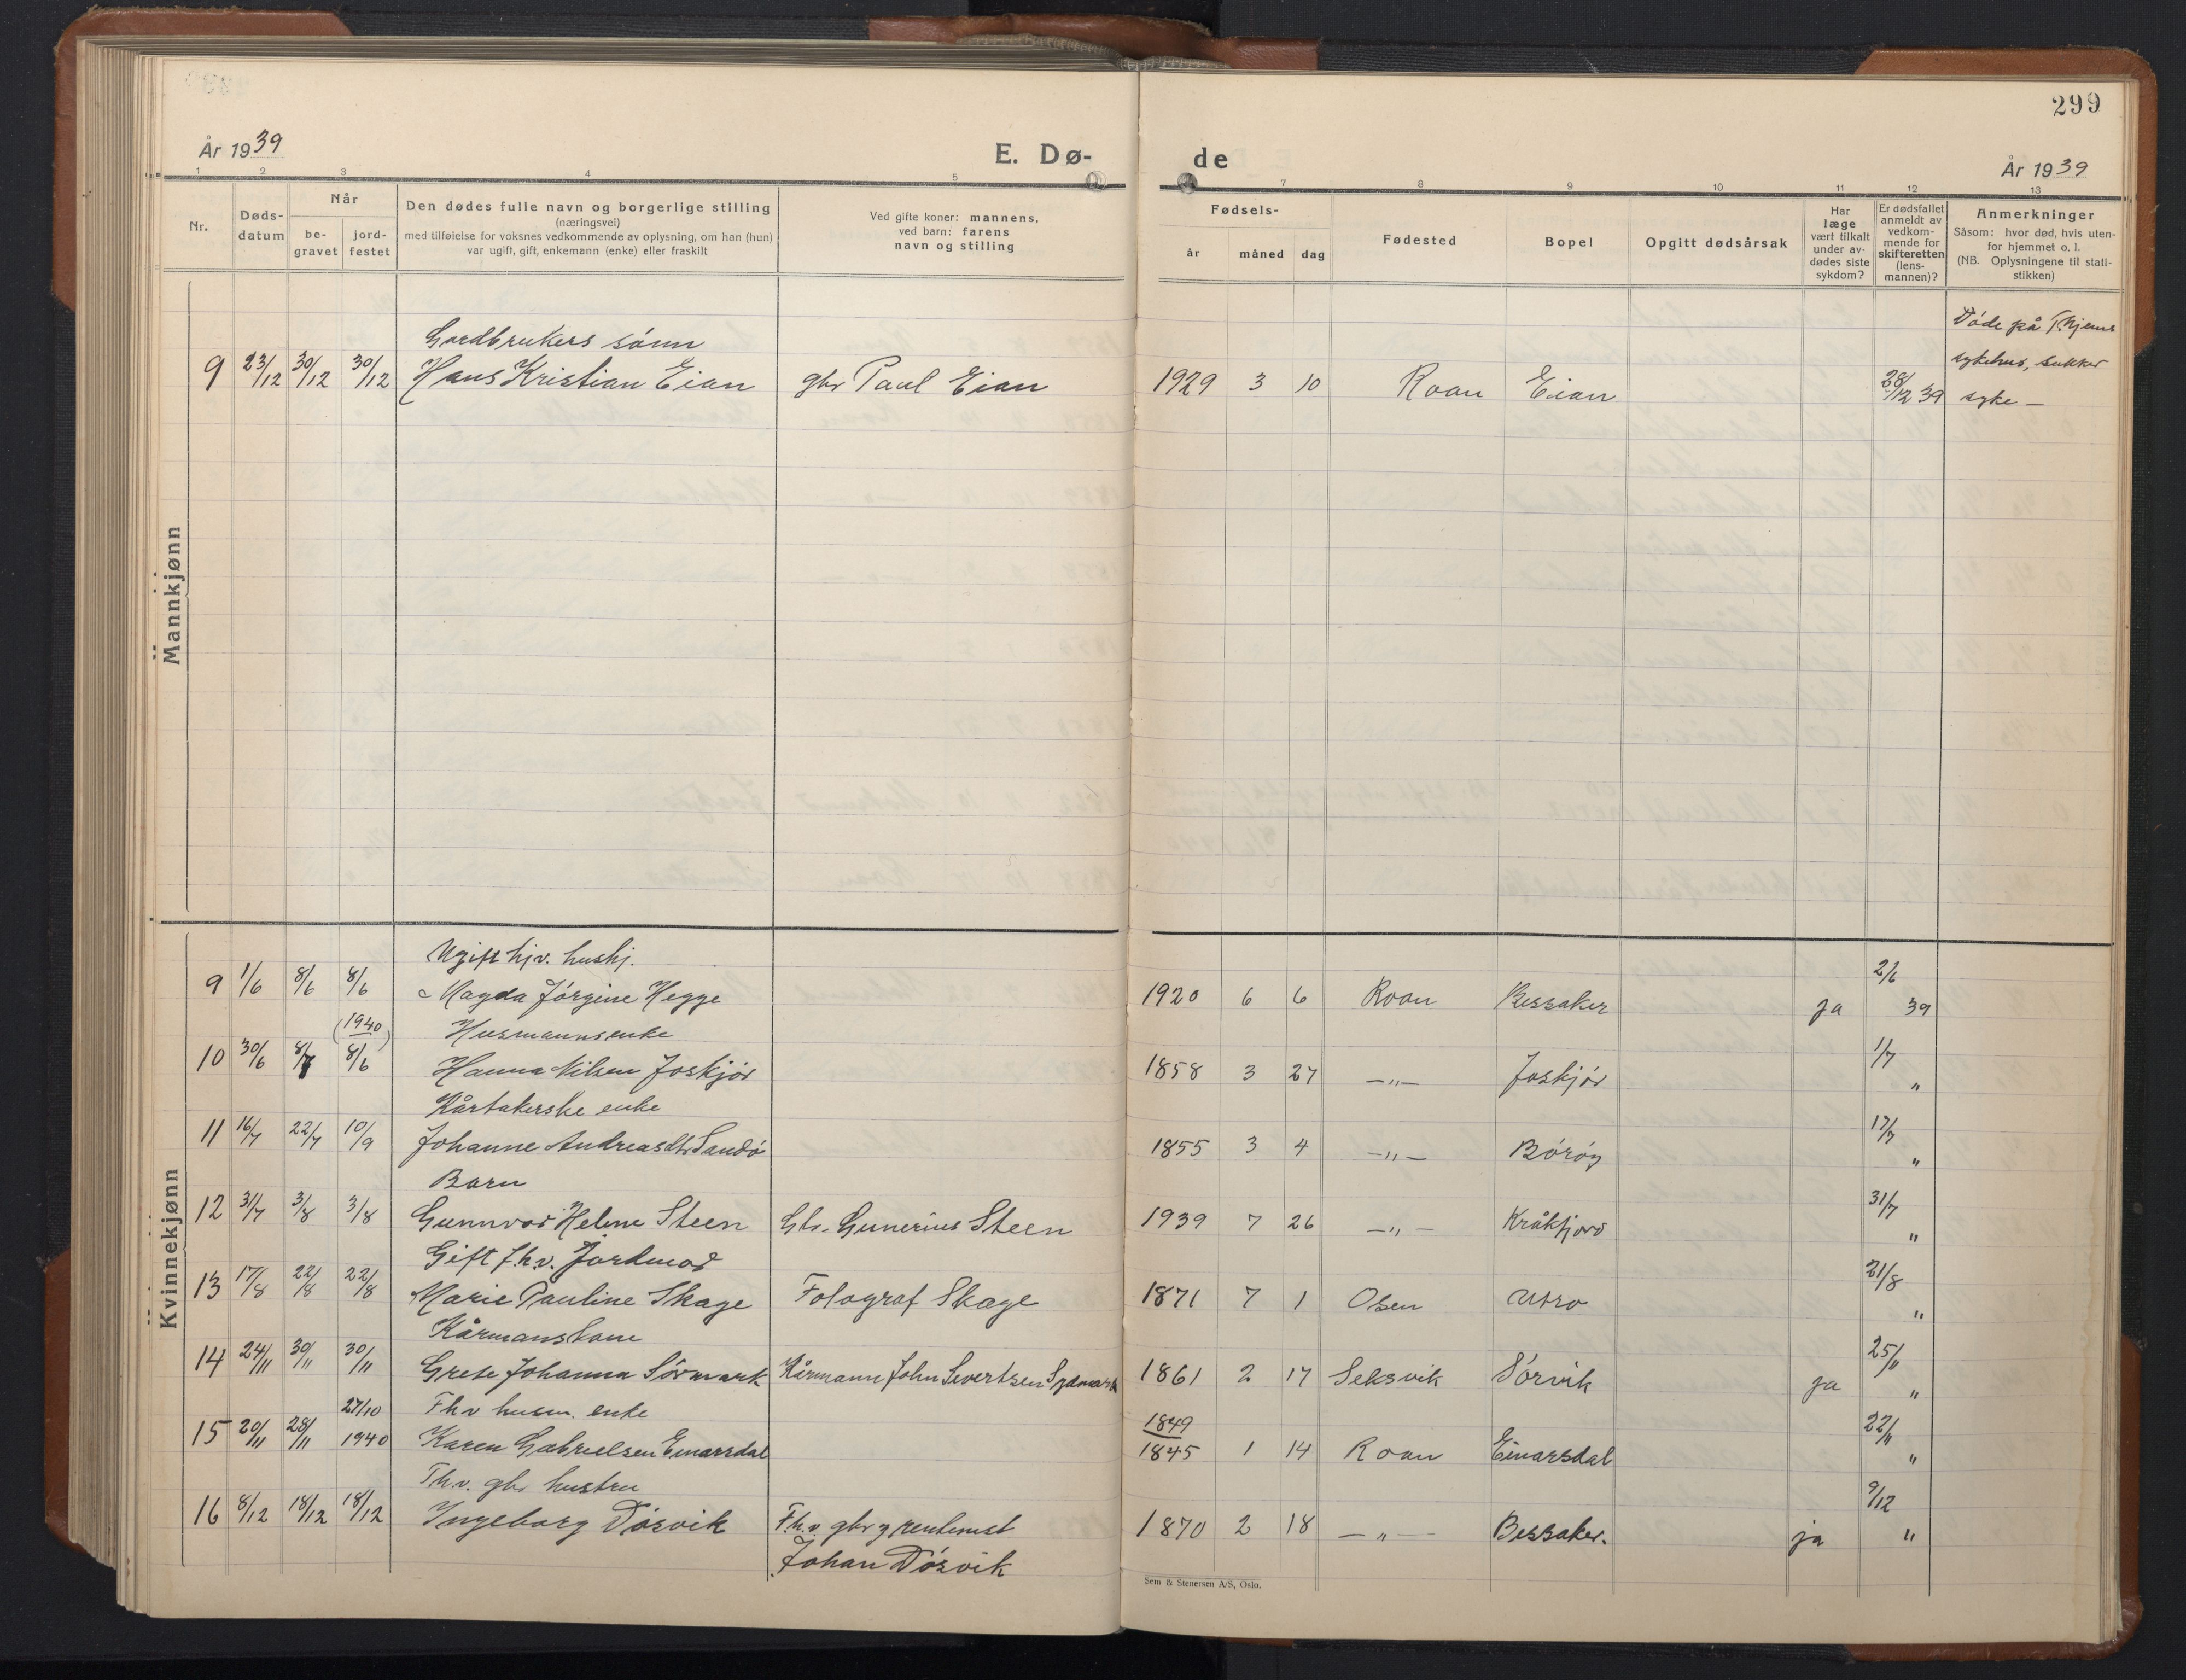 299
År 1939
E. Dø-
de
År 1939
1 2 3 4 5 7 8 9 10 11 12 13
Nr.
Døds-
datum
Når
be-
gravet
jord-
festet
Den dødes fulle navn og borgerlige stilling
(næringsvei)
med tilføielse for voksnes vedkommende av oplysning, om han (hun)
var ugift, gift, enkemann (enke) eller fraskilt
Ved gifte koner: mannens,
ved barn: farens
navn og stilling
Fødsels-
år måned dag
Fødested
Bopel
Opgitt dødsårsak
Har
læge
vært tilkalt
under av-
dødes siste
sykdom?
Er dødsfallet
anmeldt av
vedkom-
mende for
skifteretten
(lens-
mannen)?
Anmerkninger
Såsom: hvor død, hvis uten-
for hjemmet o. l.
(NB. Oplysningene til stati-
stikken)
Mannkjønn
Gardbrukers sønn
9 23/12 30/12 30/12 Hans Kristian Eian gbr Paul Eian 1929 3 10 Roan Eian 28/12 39
Døde på Thjems
sykehus, sukker
syke —
Kvinnekjønn
Ugift hjv. hushj.
9 1/6 8/6 8/6 Magda Jørgine Hegge 1920 6 6 Roan Bessaker ja 2/6 39
(1940) Husmannsenke
10 30/6 8/7 8/6 Hanna Nilsen Joskjør 1858 3 27 —"— Joskjør 1/7 "
Kårtakerske enke
11 16/7 22/7 10/9 Johanne Andreasdtr Sandø 1855 3 4 —"— Børøy 17/7 "
Barn
12 31/7 3/8 3/8 Gunnvor Helene Steen Gbr. Gunerius Steen 1939 7 26 —"— Kråkfjord 31/7 "
Gift f.h.v. Jordmor
13 17/8 22/8 22/8 Marie Pauline Skage Fotograf Skage 1871 7 1 Osen Utro 21/8 "
Kårmanskone
14 24/11 30/11 30/11 Grete Johanna Sørmark Kårmann John Sivertsen 1861 2 17 Leksvik Sørvik ja 25/11 "
27/10 F.h.v husm. enke 1849
15 20/11 28/11 1940 Karen Gabrielsen Einarsdal 1845 1 14 Roan Einarsdal 22/11 "
F.h.v. gbr hustru
16 8/12 18/12 18/12 Ingeborg Døsvik F.h.v. gbr g rentenist 1870 2 18 —"— Bessaker. ja 9/12 "
Johan Døsvik
Sem & Stenersen A/S, Oslo.